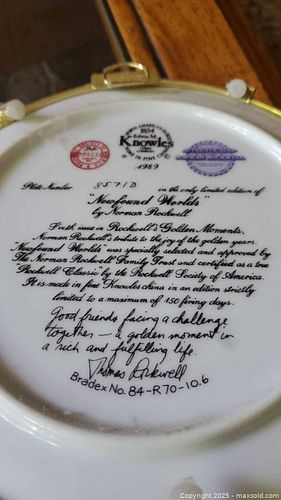 1854
Edwin M.
Knowles
IN FINE CHINA
1989
Plate Number 8571D in the only limited edition of
"Newfound Worlds"
by Norman Rockwell
Sixth issue in Rockwell's Golden Moments,
Norman Rockwell's tribute to the joy of the golden years.
"Newfound Worlds" was specially selected and approved by
The Norman Rockwell Family Trust and certified as a true
Rockwell Classic by the Rockwell Society of America.
It is made in fine Knowles china in an edition strictly
limited to a maximum of 150 firing days.
Good friends facing a challenge
together — a golden moment in
a rich and fulfilling life.
Thomas Rockwell
Bradex No. 84-R70-10.6
Copyright © 2025 - maxsold.com